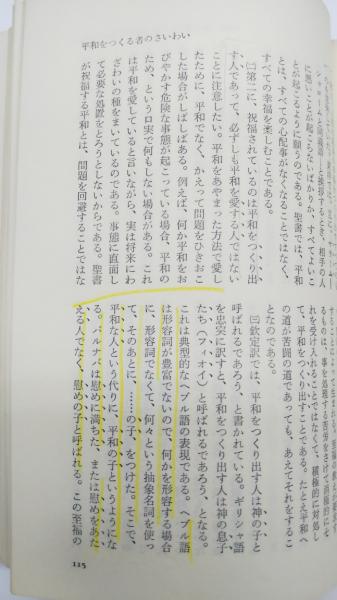 平和をつくる者のさいわい
に悪いことが起こらないばかりか、すべてよいこ
とが起こるように願うのである。聖書では、平和
とは、すべての心配事がなくなることではなく、
すべての幸福を楽しむことである。
㈡第二に、祝福されているのは平和をつくり出
す人であって、必ずしも平和を愛する人ではない
ことに注意したい。平和をあやまった方法で愛し
たために、平和でなく、かえって問題をひきおこ
した場合がしばしばある。例えば、何か平和をお
びやかす危険な事態が起こっている場合、平和の
ため、という口実で何もしない場合がある。これ
は平和を愛していると言いながら、実は将来にわ
ざわいの種をまいているのである。事態に直面し
て必要な処置をとろうとしないからである。聖書
が祝福する平和とは、問題を回避することではな
るものは、事を処理する苦労をさけて、
れを受け入れることではなくて、積極的に対処し
て、平和をつくり出すことである。たとえ平和へ
の道が苦闘の道であっても、あえてそれをするこ
となのである。
㈢欽定訳では、平和をつくり出す人は神の子と
呼ばれるであろう、と書かれている。ギリシャ語
を忠実に訳すと、平和をつくり出す人は神の息子
たち（フィオイ）と呼ばれるであろう、となる。
これは典型的なヘブル語の表現である。ヘブル語
は形容詞が豊富でないので、何かを形容する場合
に、形容詞でなくて、何々という抽象名詞を使っ
て、そのあとに、……の子、をつけた。そこで、
平和な人という代りに、平和の子というようにな
る。バルナバは慰めに満ちた、または慰めをあた
える人でなく、慰めの子と呼ばれる。この至福の
115